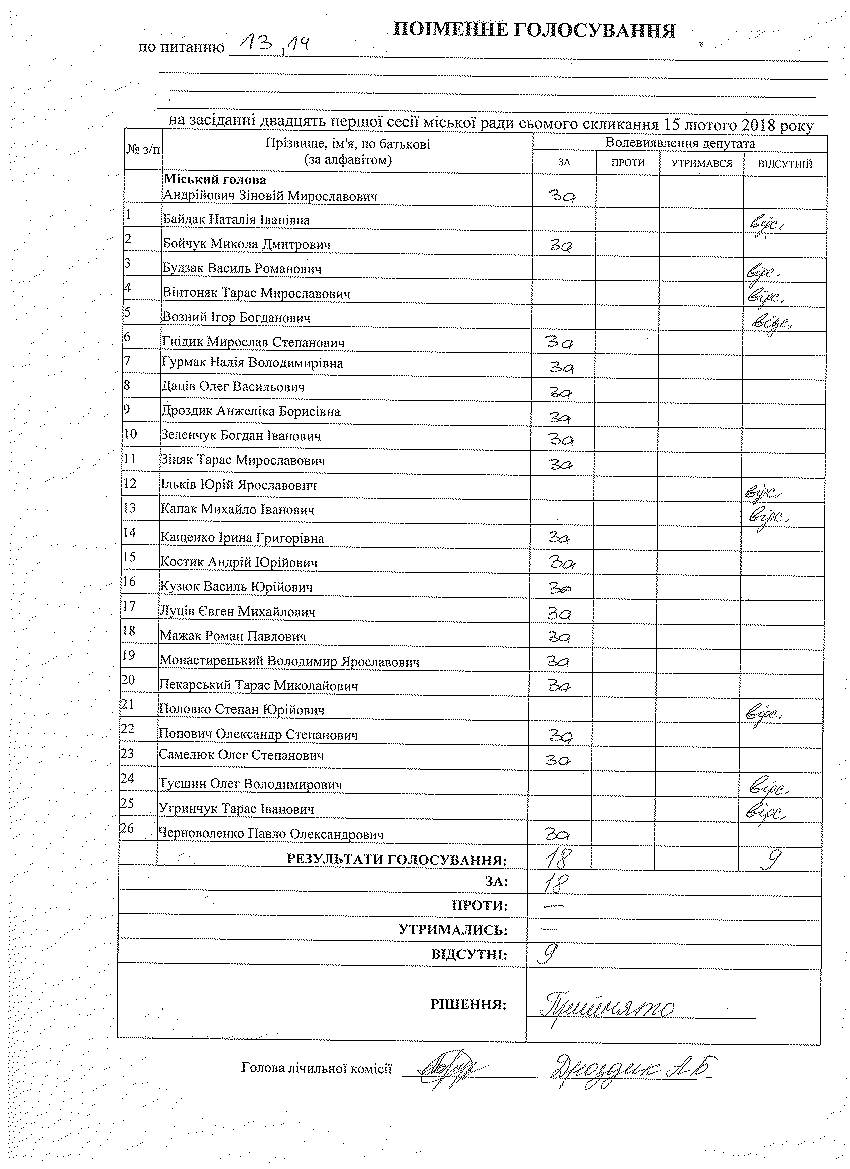 ПОІМЕННЕ ГОЛОСУВАННЯ
по питанню 13, 14
на засіданні двадцять першої сесії міської ради сьомого скликання 15 лютого 2018 року
№ з/п Прізвище, ім'я, по батькові (за алфавітом) Волевиявлення депутата
ЗА ПРОТИ УТРИМАВСЯ ВІДСУТНІЙ
Міський голова
Андрійович Зіновій Мирославович за
1 Байдак Наталія Іванівна відс.
2 Бойчук Микола Дмитрович за
3 Будзак Василь Романович відс.
4 Вінтоняк Тарас Мирославович відс.
5 Возний Ігор Богданович відс.
6 Гнідик Мирослав Степанович за
7 Гурмак Надія Володимирівна за
8 Даців Олег Васильович за
9 Дроздик Анжеліка Борисівна за
10 Зеленчук Богдан Іванович за
11 Зіняк Тарас Мирославович за
12 Ільків Юрій Ярославович відс
13 Капак Михайло Іванович відс.
14 Кащенко Ірина Григорівна за
15 Костик Андрій Юрійович за
16 Кузюк Василь Юрійович за
17 Луців Євген Михайлович за
18 Мажак Роман Павлович за
19 Монастирецький Володимир Ярославович за
20 Пекарський Тарас Миколайович за
21 Половко Степан Юрійович відс.
22 Попович Олександр Степанович за
23 Самелюк Олег Степанович за
24 Туєшин Олег Володимирович відс.
25 Угринчук Тарас Іванович відс.
26 Черноволенко Павло Олександрович за
РЕЗУЛЬТАТИ ГОЛОСУВАННЯ: 18 9
ЗА: 18
ПРОТИ: —
УТРИМАЛИСЬ: —
ВІДСУТНІ: 9
РІШЕННЯ: Прийнято
Голова лічильної комісії Дроздик А.Б